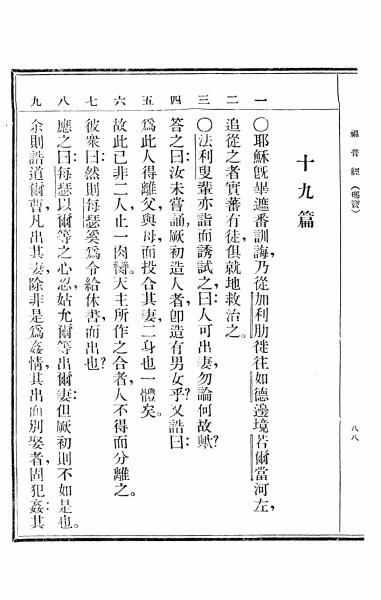 福音經(瑪竇)
八八
十九篇
一 〇耶穌旣畢遮番訓誨,乃從加利肋徙往如德邊境若爾當河左,
二 追從之者實蕃有徒,俱就地救治之。
三 〇法利叟輩亦詣而誘試之:曰:人可出妻,勿論何故歟?
四 答之曰:汝未嘗誦,厥初造人者,卽造有男女乎?又誥曰:
五 爲此人得離父與母,而投合其妻,二身也一體矣。
六 故此已非二人,止一肉
七 彼衆曰:然則每瑟奚爲令給休書而出也?
八 應之曰:每瑟以爾等之心忍,姑允爾等出爾妻:但厥初則不如是也。
九 余則誥道爾曹,凡出其妻,除非是爲姦情,其出而別娶者,固犯姦:其
天主所作之合者,人不得而分離之。